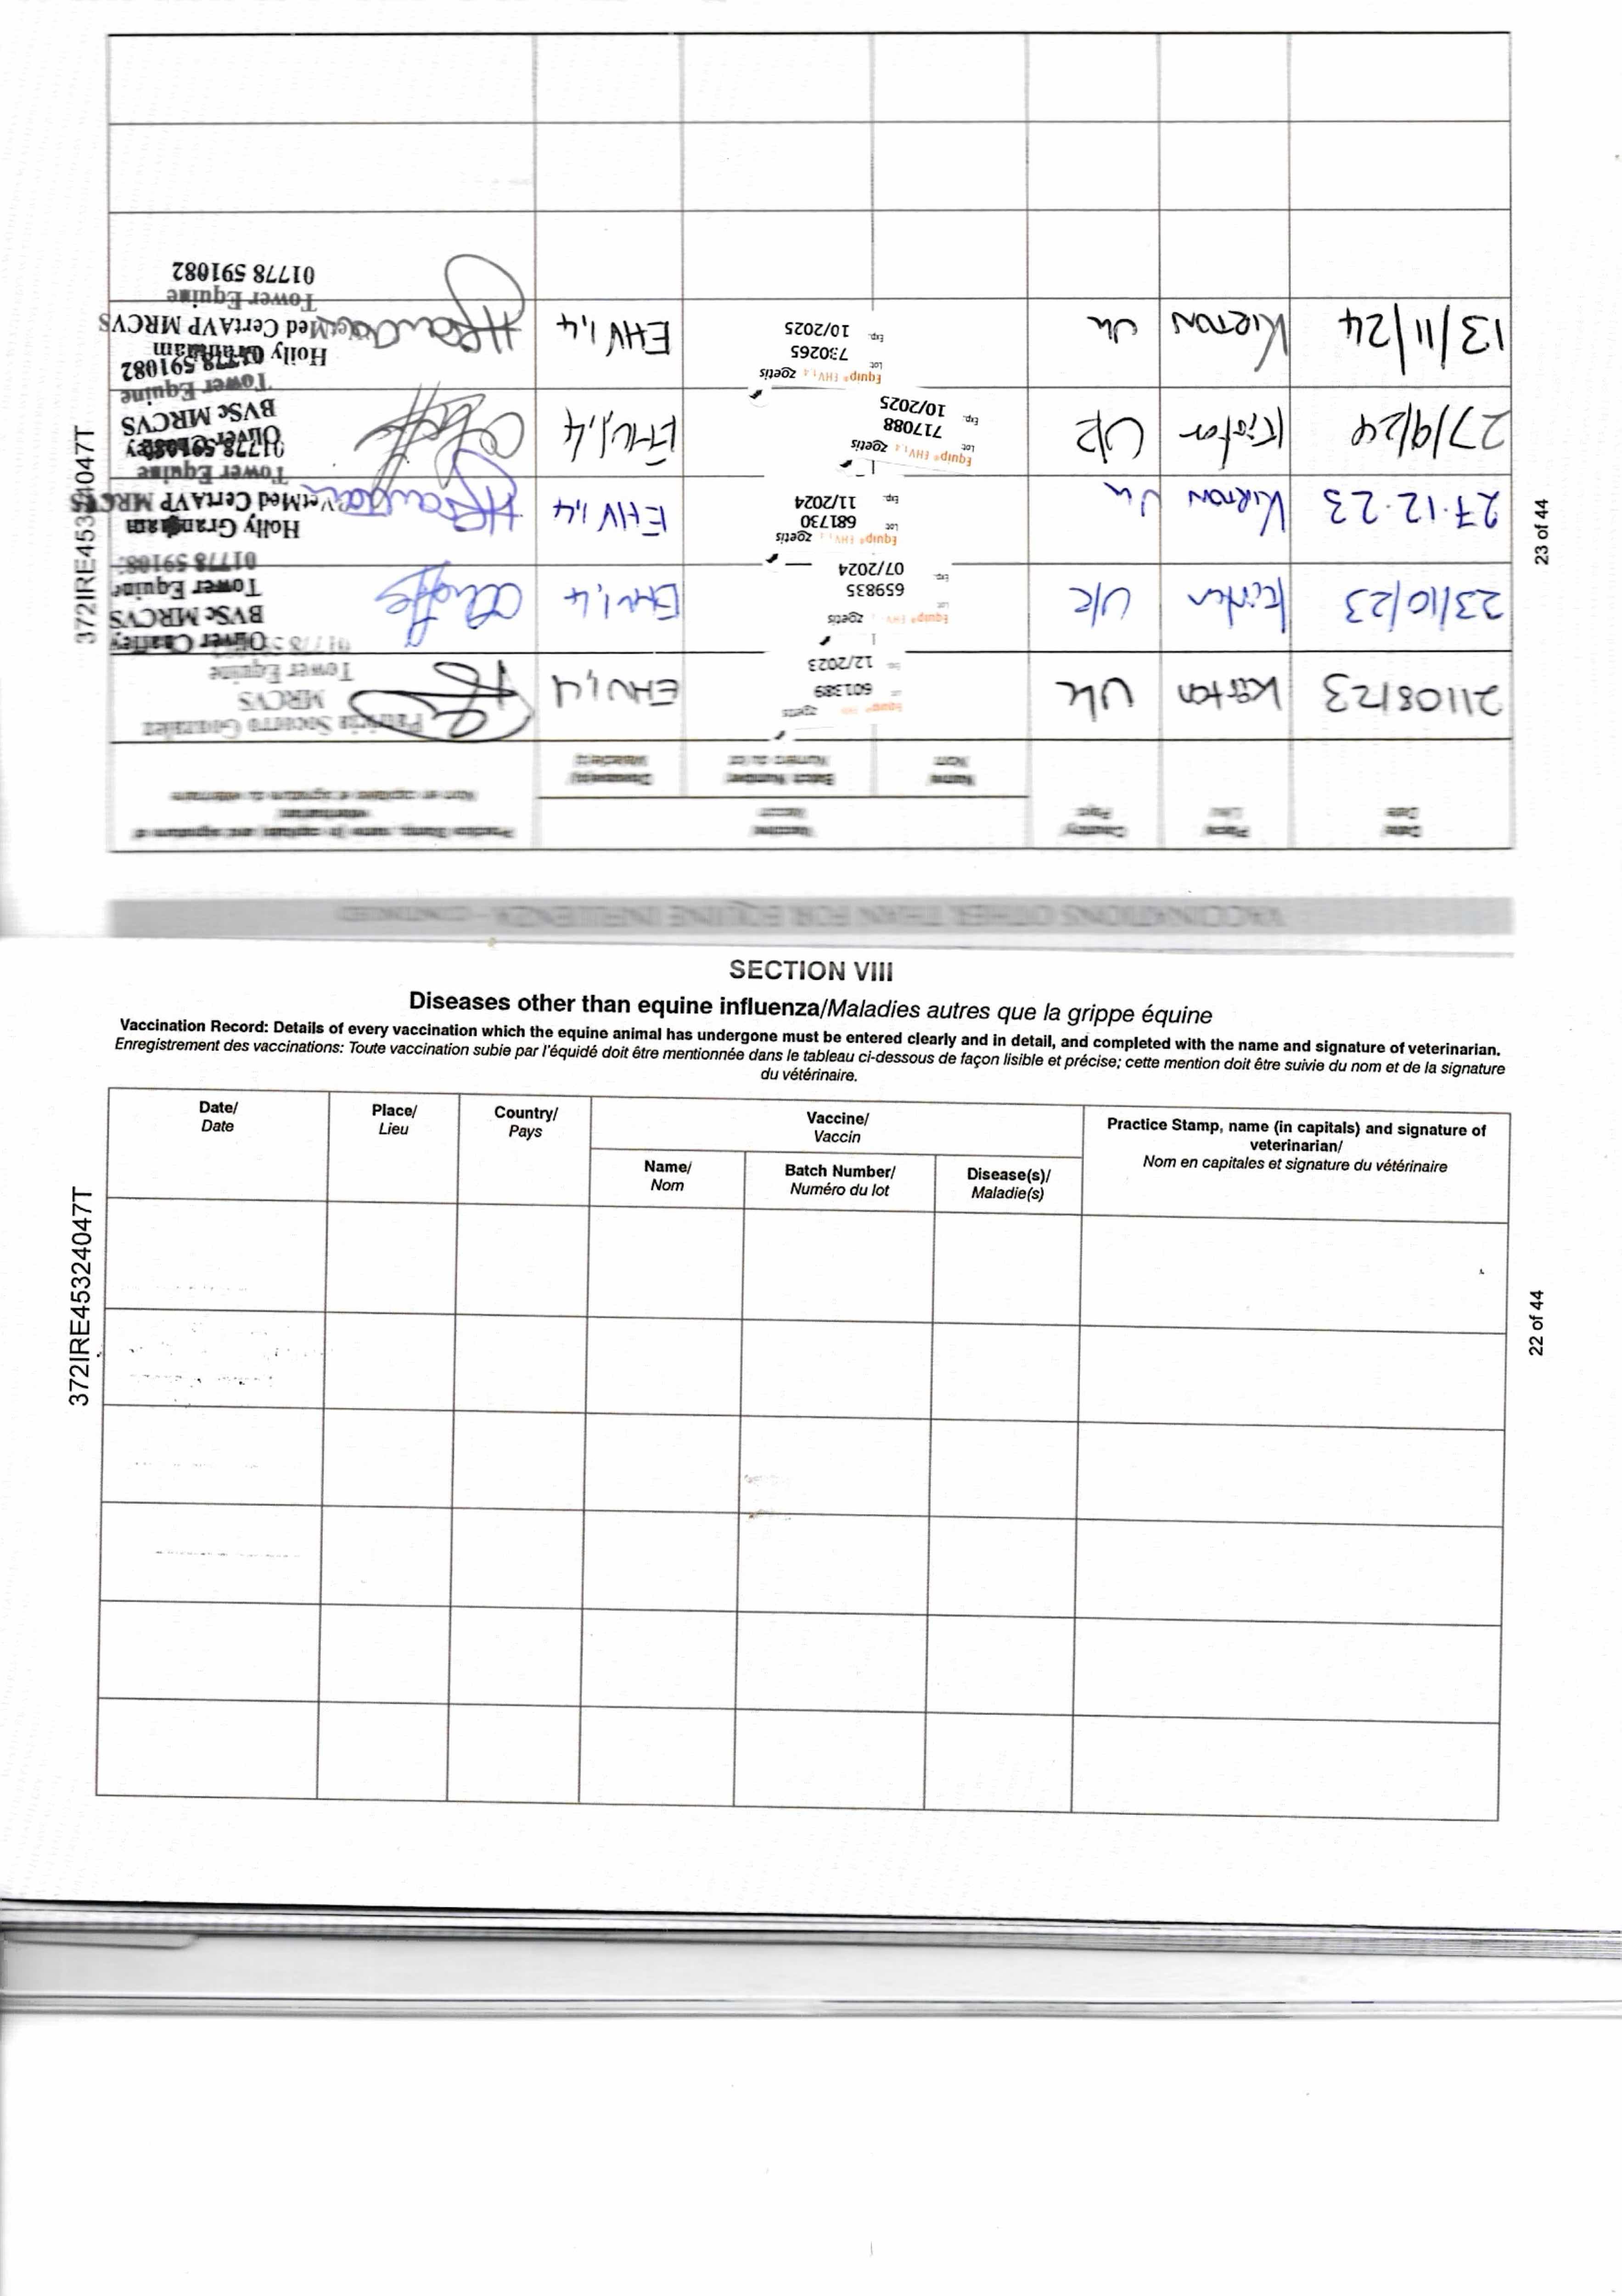 VACCINATIONS OTHER THAN FOR EQUINE INFLUENZA – CONTINUED
Date
Date
Place
Lieu
Country
Pays
Vaccine
Vaccin
Name
Nom
Batch Number
Numéro du lot
Disease(s)
Maladie(s)
Practice Stamp, name (in capitals) and signature of
veterinarian
Nom en capitales et signature du vétérinaire
21/08/23 Kirton UK
Equip® EHV zoetis
Lot 601389
Exp. 12/2023
EHV1,4
Patricia Socorro Gonzalez
MRCVS
Tower Equine
23/10/23 Kirton UK
Equip® EHV zoetis
Lot 659835
Exp. 07/2024
EHV1,4
Oliver Chaffey
BVSc MRCVS
Tower Equine
01778 59108
27.12.23 KIRTON UK
Equip® EHV1,4 zoetis
Lot 681730
Exp. 11/2024
EHV1,4
Holly Grandam
VetMed CertAVP MRCVS
Tower Equine
01778 591082
27/9/24 Kirton UK
Equip® EHV1,4 zoetis
Lot 717088
Exp. 10/2025
EHV1,4
Oliver Chaffey
BVSc MRCVS
Tower Equine
01778 591082
13/11/24 KIRTON UK
Equip® EHV1,4 zoetis
Lot 730265
Exp. 10/2025
EHV1,4
Holly
VetMed CertAVP MRCVS
Tower Equine
01778 591082
372IRE45324047T
23 of 44
SECTION VIII
Diseases other than equine influenza/Maladies autres que la grippe équine
Vaccination Record: Details of every vaccination which the equine animal has undergone must be entered clearly and in detail, and completed with the name and signature of veterinarian.
Enregistrement des vaccinations: Toute vaccination subie par l'équidé doit être mentionnée dans le tableau ci-dessous de façon lisible et précise; cette mention doit être suivie du nom et de la signature
du vétérinaire.
Date/
Date
Place/
Lieu
Country/
Pays
Vaccine/
Vaccin
Name/
Nom
Batch Number/
Numéro du lot
Disease(s)/
Maladie(s)
Practice Stamp, name (in capitals) and signature of
veterinarian/
Nom en capitales et signature du vétérinaire
372IRE45324047T
22 of 44